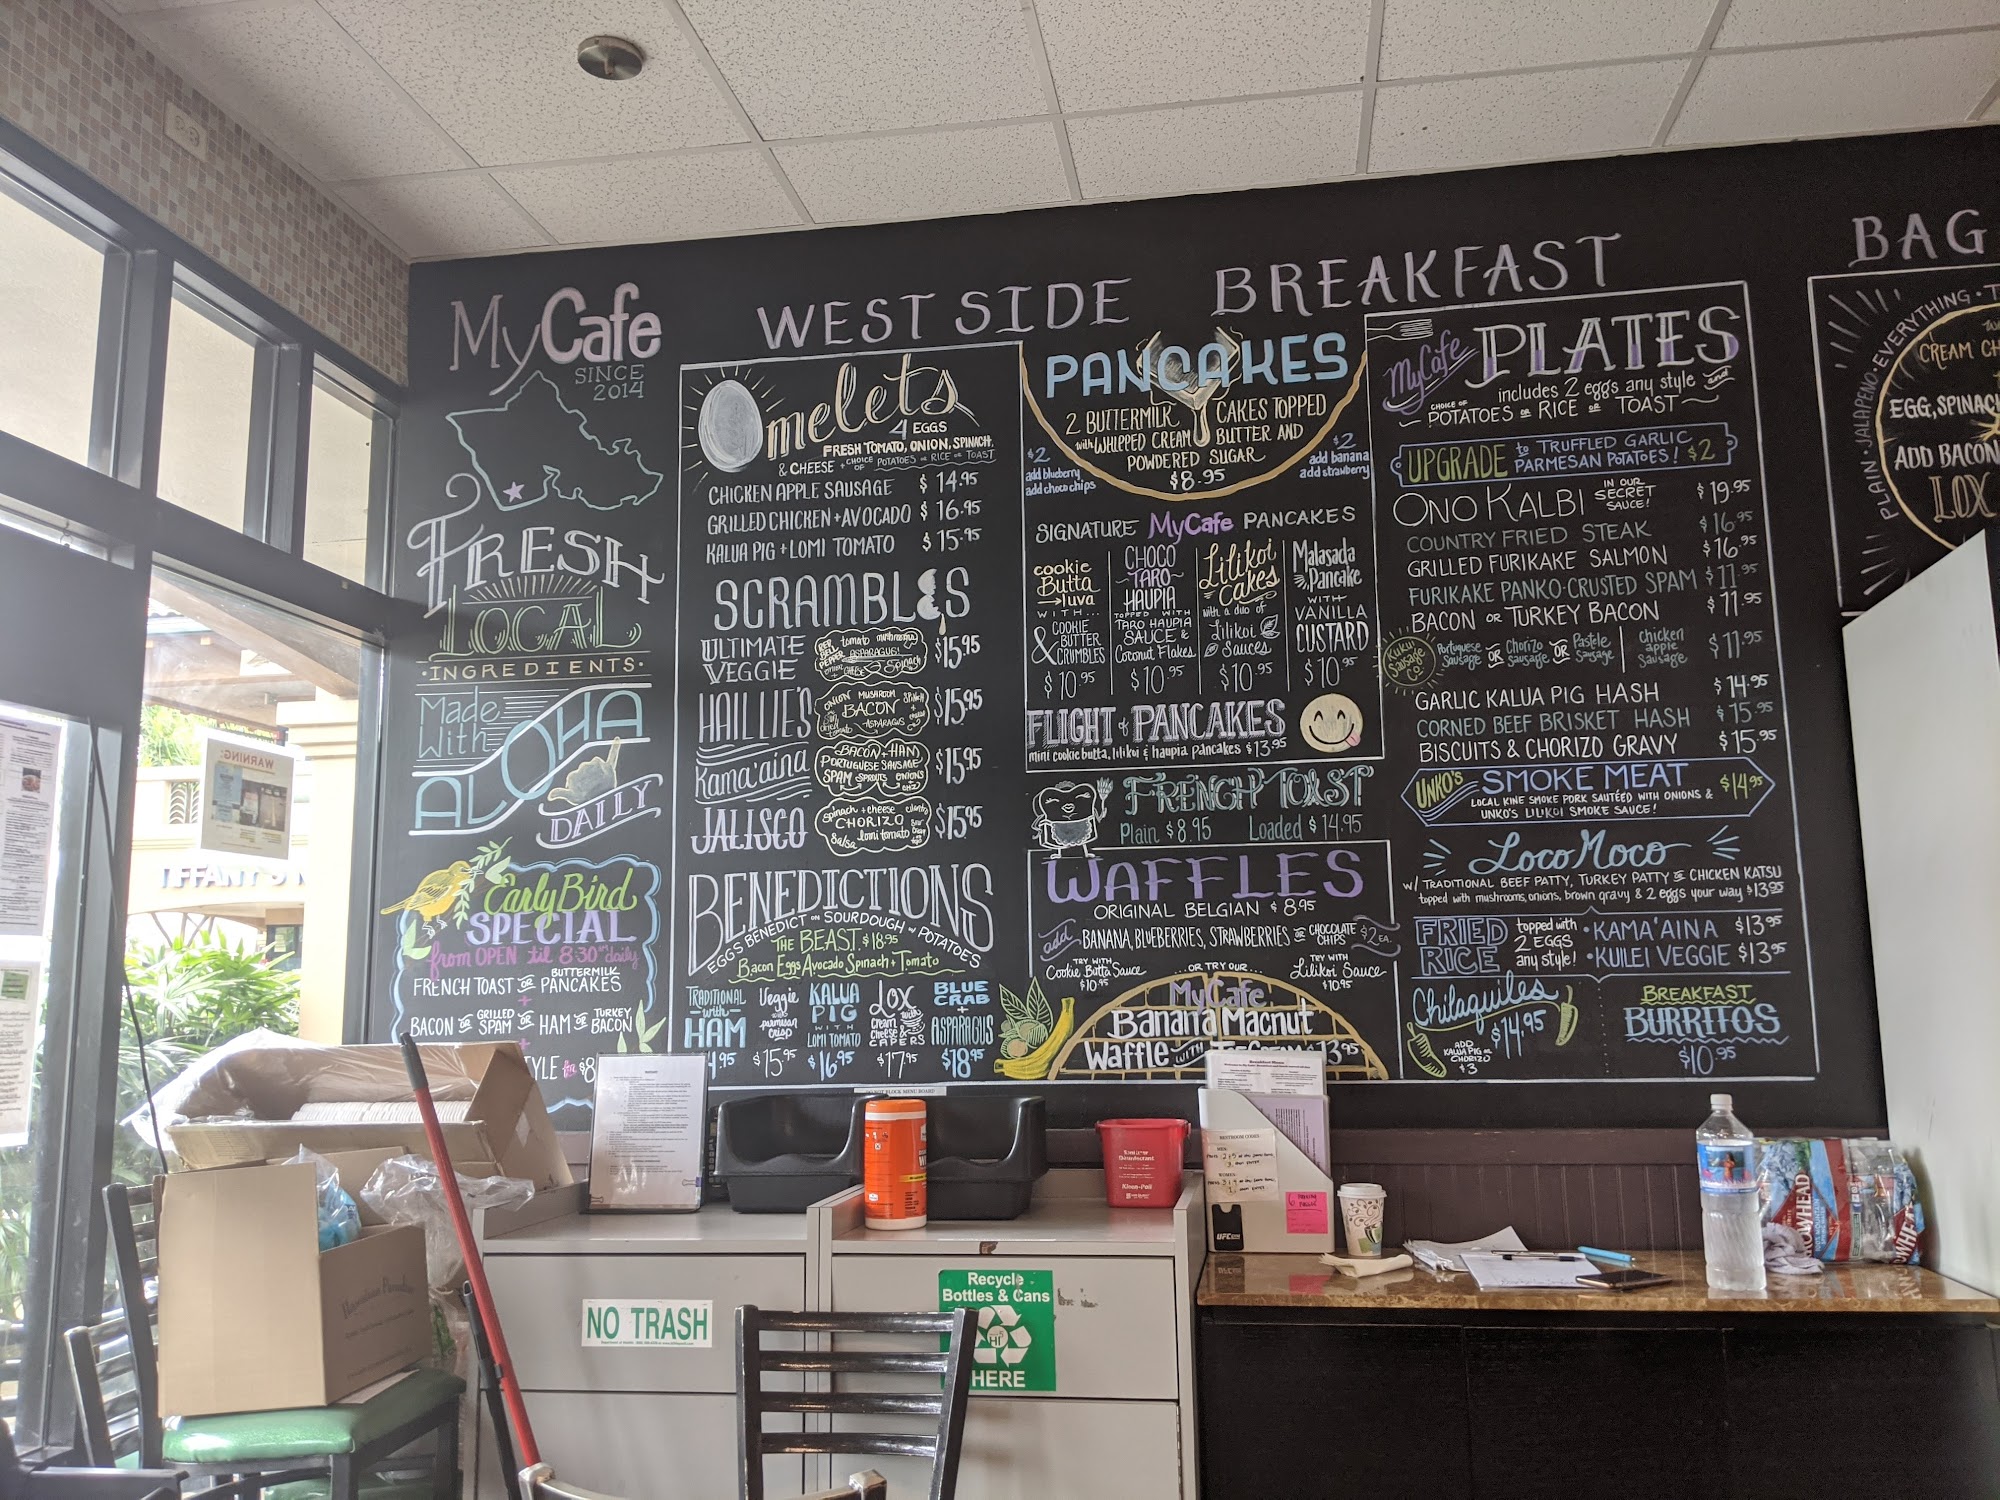 MyCafe
SINCE
2014
FRESH
LOCAL
·INGREDIENTS·
Made
With
ALOHA
DAILY
Early Bird
SPECIAL
from OPEN 'til 8:30am daily
FRENCH TOAST OR BUTTERMILK PANCAKES
+
BACON OR GRILLED SPAM OR HAM OR TURKEY BACON
+
WEST SIDE BREAKFAST
Omelets
4 EGGS
FRESH TOMATO, ONION, SPINACH,
& CHEESE + CHOICE OF POTATOES OR RICE OR TOAST
CHICKEN APPLE SAUSAGE $14.95
GRILLED CHICKEN + AVOCADO $16.95
KALUA PIG + LOMI TOMATO $15.95
SCRAMBLES
ULTIMATE VEGGIE
RED BELL PEPPER tomato mushrooms ASPARAGUS! onion CHEESE Spinach
$15.95
HAILLIE'S
ONION MUSHROOM SPINACH BACON ASPARAGUS
$15.95
Kama'aina
BACON + HAM
PORTUGUESE SAUSAGE
SPAM SPROUTS ONIONS
$15.95
JALISCO
spinach + cheese cilantro
CHORIZO
Salsa lomi tomato
$15.95
BENEDICTIONS
EGGS BENEDICT ON SOURDOUGH w/ POTATOES
THE BEAST $18.95
Bacon Eggs Avocado Spinach + Tomato
TRADITIONAL with HAM
4.95
Veggie with parmesan crisp
$15.95
KALUA PIG WITH LOMI TOMATO
$16.95
LOX with cream cheese & CAPERS
$17.95
BLUE CRAB + ASPARAGUS
$18.95
PANCAKES
2 BUTTERMILK CAKES TOPPED
with WHIPPED CREAM BUTTER AND
POWDERED SUGAR
$8.95
$2
add blueberry
add choco chips
$2
add banana
add strawberry
SIGNATURE MyCafe PANCAKES
cookie Butta luva
WITH...
COOKIE BUTTER & CRUMBLES
$10.95
CHOCO TARO HAUPIA
TOPPED WITH
TARO HAUPIA SAUCE & Coconut Flakes
$10.95
Lilikoi Cakes
with a duo of
Lilikoi Sauces
$10.95
Malasada Pancake
WITH
VANILLA CUSTARD
$10.95
FLIGHT of PANCAKES
mini cookie butta, lilikoi & haupia pancakes $13.95
FRENCH TOAST
Plain $8.95 Loaded $14.95
WAFFLES
ORIGINAL BELGIAN $8.95
add BANANA, BLUEBERRIES, STRAWBERRIES OR CHOCOLATE CHIPS $2 EA.
TRY WITH
Cookie Butta Sauce
$10.95
...OR TRY OUR...
TRY WITH
Lilikoi Sauce
$10.95
MyCafe
Banana Macnut
Waffle WITH ICE CREAM $13.95
MyCafe PLATES
includes 2 eggs any style and
CHOICE OF POTATOES OR RICE OR TOAST
UPGRADE to TRUFFLED GARLIC PARMESAN POTATOES! $2
ONO KALBI IN OUR SECRET SAUCE! $19.95
COUNTRY FRIED STEAK $16.95
GRILLED FURIKAKE SALMON $16.95
FURIKAKE PANKO-CRUSTED SPAM $11.95
BACON OR TURKEY BACON $11.95
Kukui Sausage Co
Portuguese Sausage OR Chorizo Sausage OR Pastele Sausage | Chicken apple sausage $11.95
GARLIC KALUA PIG HASH $14.95
CORNED BEEF BRISKET HASH $15.95
BISCUITS & CHORIZO GRAVY $15.95
UNKO'S SMOKE MEAT $14.95
LOCAL KINE SMOKE PORK SAUTÉED WITH ONIONS &
UNKO'S LILIKOI SMOKE SAUCE!
Loco Moco
W/ TRADITIONAL BEEF PATTY, TURKEY PATTY OR CHICKEN KATSU
topped with mushrooms, onions, brown gravy & 2 eggs your way $13.95
FRIED RICE
topped with 2 EGGS any style!
·KAMA'AINA $13.95
·KUILEI VEGGIE $13.95
Chilaquiles
$14.95
ADD KALUA PIG OR CHORIZO
$3
BREAKFAST
BURRITOS
$10.95
BAG
PLAIN·JALAPENO·EVERYTHING·
CREAM CH
EGG, SPINACH
ADD BACON
LOX
WARNING:
NOT BLOCK MENU BOARD
NO TRASH
Recycle
Bottles & Cans
HI 5
HERE
RESTROOM CODES
UFC GYM
Kleen-Pail
ARROWHEAD